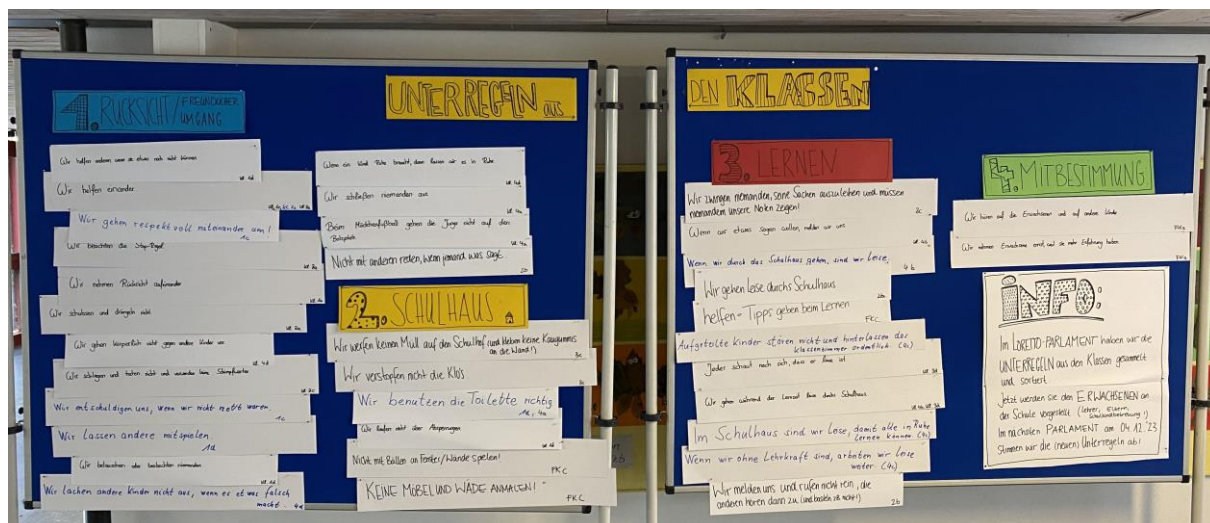 1. RÜCKSICHT/ FREUNDLICHER
UMGANG
Wir helfen anderen wenn sie etwas noch nicht können
Kl. 4d
Wir helfen einander.
Wir gehen respektvoll miteinander um!
1c
Wir beachten die Stop-Regel
Kl. 2a
Wir nehmen Rücksicht aufeinander
Wir schubsen und drängeln nicht
Wir gehen körperlich nicht gegen andere Kinder vor
Kl. 4d
Wir schlagen und treten nicht und verwenden keine Schimpfwörter
Kl. 2c
Wir entschuldigen uns, wenn wir nicht nett waren.
1c
Wir lassen andere mitspielen
1d
Wir belauschen oder beobachten niemanden
Wir lachen andere Kinder nicht aus, wenn es etwas falsch
macht. 4a
UNTERREGELN aus
Wenn ein Kind Ruhe braucht, dann lassen wir es in Ruhe
Kl. 4d
Wir schließen niemanden aus
Kl. 4a
Beim Mädchenfußball gehen die Jungs nicht auf den
Bolzplatz
Kl. 4a
Nicht mit anderen reden, wenn jemand was sagt.
2b
2. SCHULHAUS
Wir werfen keinen Müll auf den Schulhof (und kleben keine Kaugummis
an die Wand!)
3c
Wir verstopfen nicht die Klo's.
3c
Wir benutzen die Toilette richtig
1d, 4a
Wir laufen nicht über Absperrungen
Nicht mit Bällen an Fenster/Wände spielen!
FKC
KEINE MÖBEL UND WÄDE ANMALEN!
FKC
DEN KLASSEN
3. LERNEN
Wir zwingen niemanden, seine Sachen auszuleihen und müssen
niemandem unsere Noten zeigen!
2c
Wenn wir etwas sagen wollen, melden wir uns
Kl. 4b
Wenn wir durch das Schulhaus gehen, sind wir leise.
4b
Wir gehen leise durchs Schulhaus
helfen - Tipps geben beim Lernen
FKC
Aufgeteilte Kinder stören nicht und hinterlassen das
klassenzimmer ordentlich. (4c)
Jeder schaut nach sich, dass er leise ist
Kl. 3d
Wir gehen während der Lernzeit leise durchs Schulhaus
Im Schulhaus sind wir leise, damit alle in Ruhe
lernen können. (4c)
Wenn wir ohne Lehrkraft sind, arbeiten wir leise
weiter (4c)
Wir melden uns und rufen nicht rein, die
anderen hören dann zu (und basteln zB nicht!)
2b
4. MITBESTIMMUNG
Wir hören auf die Erwachsenen und auf andere Kinder
Wir nehmen Erwachsene ernst, weil sie mehr Erfahrung haben
INFO:
Im LORETTO-PARLAMENT haben wir die
UNTERREGELN aus den Klassen gesammelt
und sortiert.
Jetzt werden sie den ERWACHSENEN an
der Schule vorgestellt (Lehrer, Eltern,
Schulkindbetreuung!)
Im nächsten PARLAMENT am 04.12.'23
stimmen wir die (neuen) Unterregeln ab!